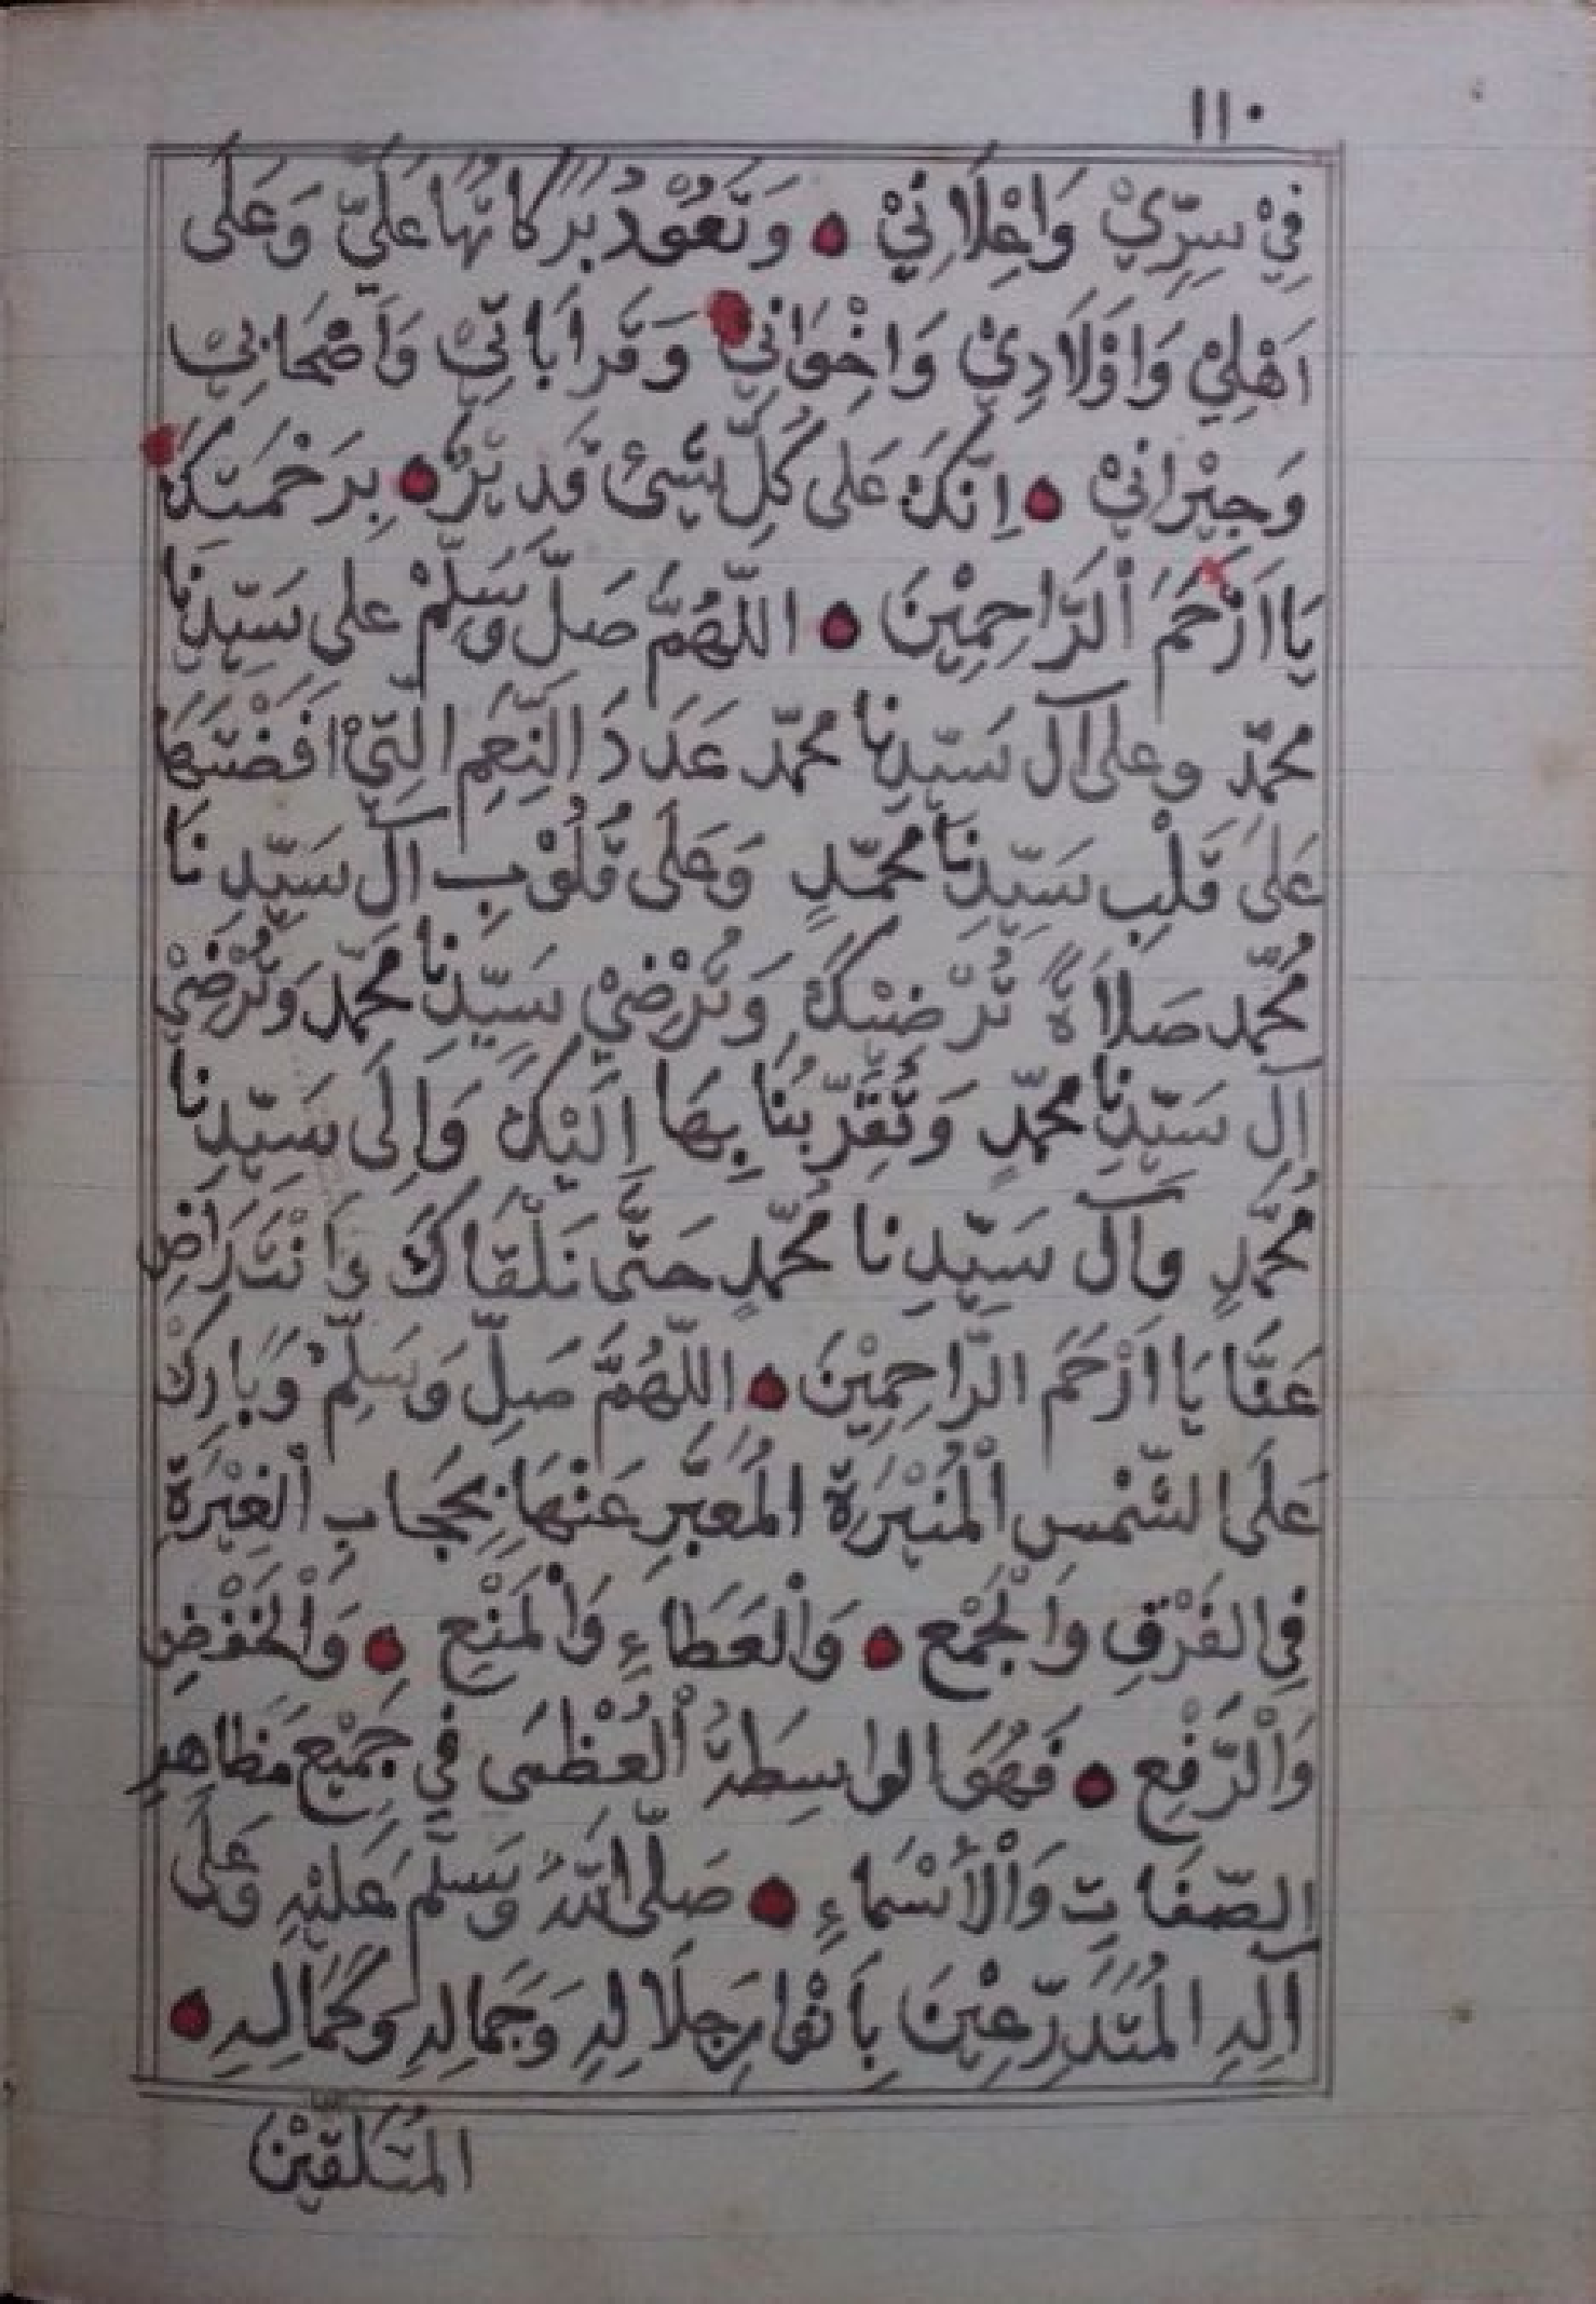 ١١٠
فِيْ سِرِّيْ وَاِعْلَانِيْ ۝ وَتَعُوْدُ بَرَكَاتُهَا عَلَيَّ وَعَلَى
اَهْلِيْ وَاَوْلَادِيْ وَاِخْوَانِيْ وَقَرَابَاتِيْ وَاَصْحَابِيْ
وَجِيْرَانِيْ ۝ اِنَّكَ عَلَى كُلِّ شَيْئٍ قَدِيْرٌ ۝ بِرَحْمَتِكَ
يَا اَرْحَمَ اْلرَّاحِمِيْنَ ۝ اللّٰهُمَّ صَلِّ وَسَلِّمْ على سَيِّدِنَا
محمَّدٍ وعلى آل سَيِّدِنا محمَّد عَدَدَ النِّعَمِ الَّتِيْ اَفَضْتَهَا
عَلَى قَلْبِ سَيِّدِنَا محمَّدٍ وَعَلَى قُلُوْبِ آلِ سَيِّدِنَا
مُحَمَّد صَلَاةً تُرْضِيْكَ وَتُرْضِيْ سَيِّدَنا مُحَمَّد وَتُرْضِيْ
آلَ سَيِّدِنَا محمَّدٍ وَتُقَرِّبُنَا بِهَا اِلَيْكَ وَاِلَى سَيِّدِنَا
مُحَمَّدٍ وآلِ سَيِّدِنا مُحَمَّدٍ حَتَّى نَلْقَاكَ وَاَنْتَ رَاضٍ
عَنَّا يَا اَرْحَمَ الرَّاحِمِيْنَ ۝ اللّٰهُمَّ صَلِّ وَسَلِّمْ وَبَارِكْ
عَلَى الشَّمْسِ اْلمُنِيْرَةِ المُعَبَّرِ عَنْهَا بِحِجَابِ اْلغِيْرَةِ
فِي الفَرْقِ وَاْلجَمْعِ ۝ وَاْلعَطَاءِ وَاْلمَنْعِ ۝ وَاْلخَفْضِ
وَاْلرَّفْعِ ۝ فَهُوَ الواسِطَةُ اْلعُظْمَى فِي جَمِيْعِ مَظَاهِرِ
الصِّفَاتِ وَاْلأَسْمَاءِ ۝ صَلَّى اللّٰهُ وَسَلَّمَ عَلَيْهِ وَعَلَى
آلِهِ المُتَدَرِّعِيْنَ بِأَنْوَارِ جَلَالِهِ وَجَمَالِهِ وَكَمَالِهِ ۝
المُتَلَقِّيْنَ